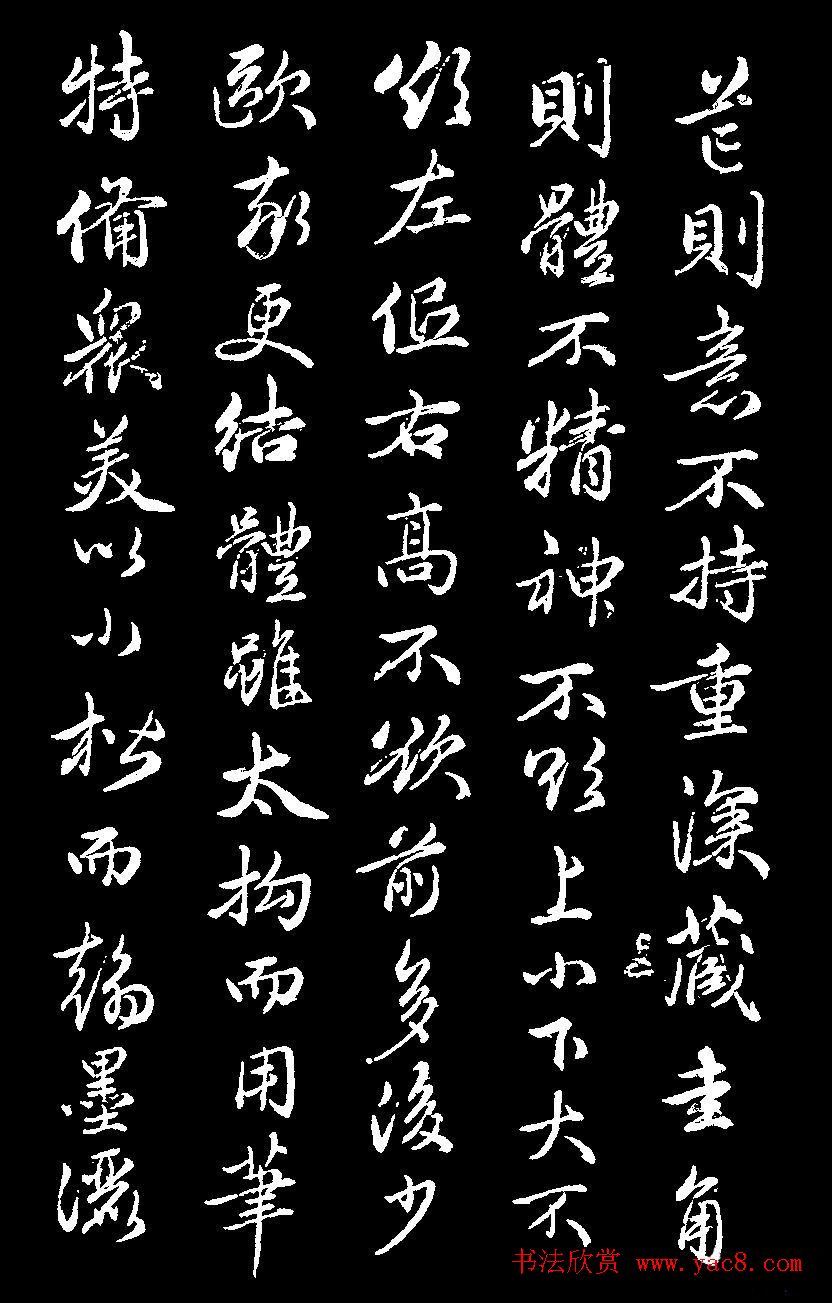 芒則意不持重深藏圭角
則體不精神不欲上小下大不
欲左低右高不欲前多後少
歐率更結體雖太拘而用筆
特備衆美以小楷而翰墨灑
书法欣赏 www.yac8.com